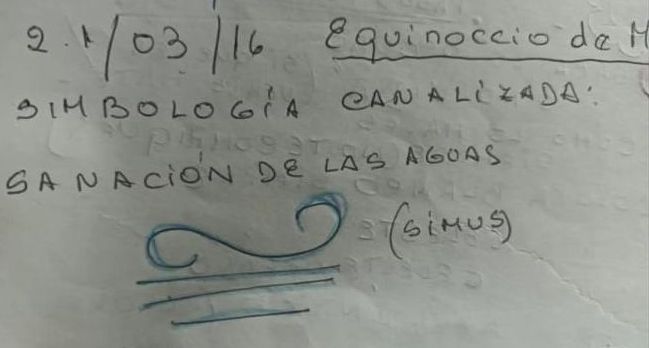 21/03/16 Equinoccio de M
SIMBOLOGÍA CANALIZADA:
SANACIÓN DE LAS AGUAS
(SIMUS)